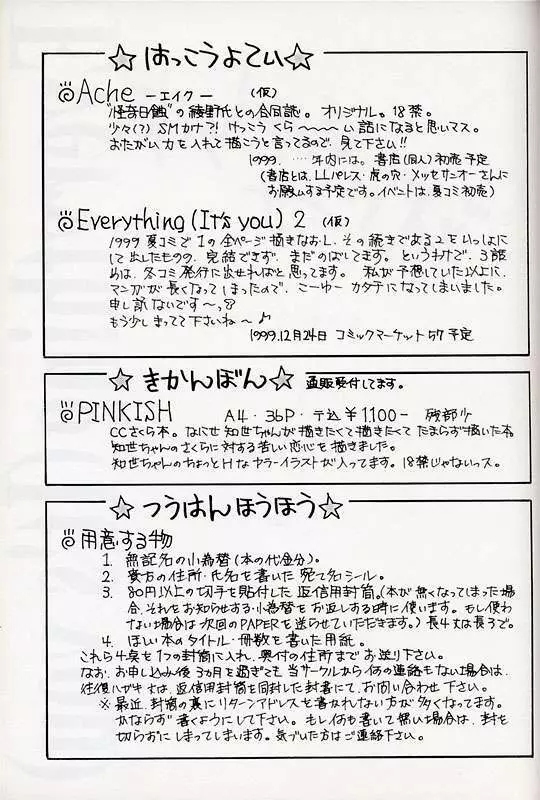 ☆はっこうよてい☆
Ache ーエイクー (仮)
"怪奇日蝕"の綾野氏との合同誌。オリジナル。18禁。
少々(?)SMカナ?!けっこうくら〜〜〜〜い話になると思いマス。
おたがい力を入れて描こうと言ってるので、見て下さい!!
1999. ‥‥年内には。書店(個人)初売予定
(書店とは、LLパレス・虎の穴・メッセサンオーさんに
お願いする予定です。イベントは、夏コミ初売)
Everything(It's you)2 (仮)
1999夏コミで1の全ページ描きなおし、その続きである2をいっしょに
して出したものの、完結できず、まだのばしてます。というわけで、3話
めは、冬コミ発行に出せればと思ってます。私が予想していた以上に、
マンガが長くなってしまったので、こーゆーカタチになってしまいました。
申し訳ないです〜っ
もう少しまってて下さいね〜♪
1999.12月24日 コミックマーケット57予定
☆きかんぼん☆ 通販受付してます。
PINKISH A4・36P・〒込¥1100- 残部少
CCさくら本。なにせ知世ちゃんが描きたくて描きたくてたまらず描いた本。
知世ちゃんのさくらに対する苦しい恋心を描きました。
知世ちゃんのちょっとHなカラーイラストが入ってます。18禁じゃないっス。
☆つうはんほうほう☆
用意する物
1. 無記名の小為替(本の代金分)。
2. 貴方の住所・氏名を書いた宛て名シール。
3. 80円以上の切手を貼付した返信用封筒。(本が無くなってしまった場
合、それをお知らせする・小為替をお返しする時に使います。もし使わ
ない場合は次回のPAPERを送らせていただきます。)長4太は長3で。
4. ほしい本のタイトル・冊数を書いた用紙。
これら4点を1つの封筒に入れ、奥付の住所までお送り下さい。
なお、お申し込み後3ヵ月を過ぎても当サークルから何の連絡もない場合は、
往復ハガキ又は、返信用封筒を同封した封書にて、お問い合わせ下さい。
※最近、封筒の裏にリターンアドレスを書かれない方が多くなってます。
かならず書くようにして下さい。もし何も書いて無い場合は、封を
切らずにしまってしまいます。気づいた方はご連絡下さい。